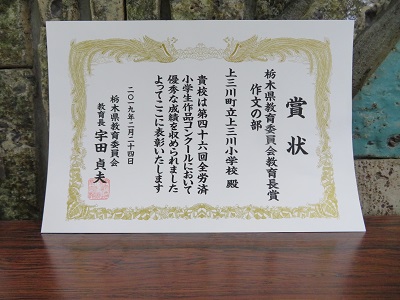 賞状
栃木県教育委員会教育長賞
作文の部
上三川町立上三川小学校 殿
貴校は第四十六回全労済
小学生作品コンクールにおいて
優秀な成績を収められました
よってここに表彰いたします
二〇一九年二月二十四日
栃木県教育委員会
教育長 宇田貞夫